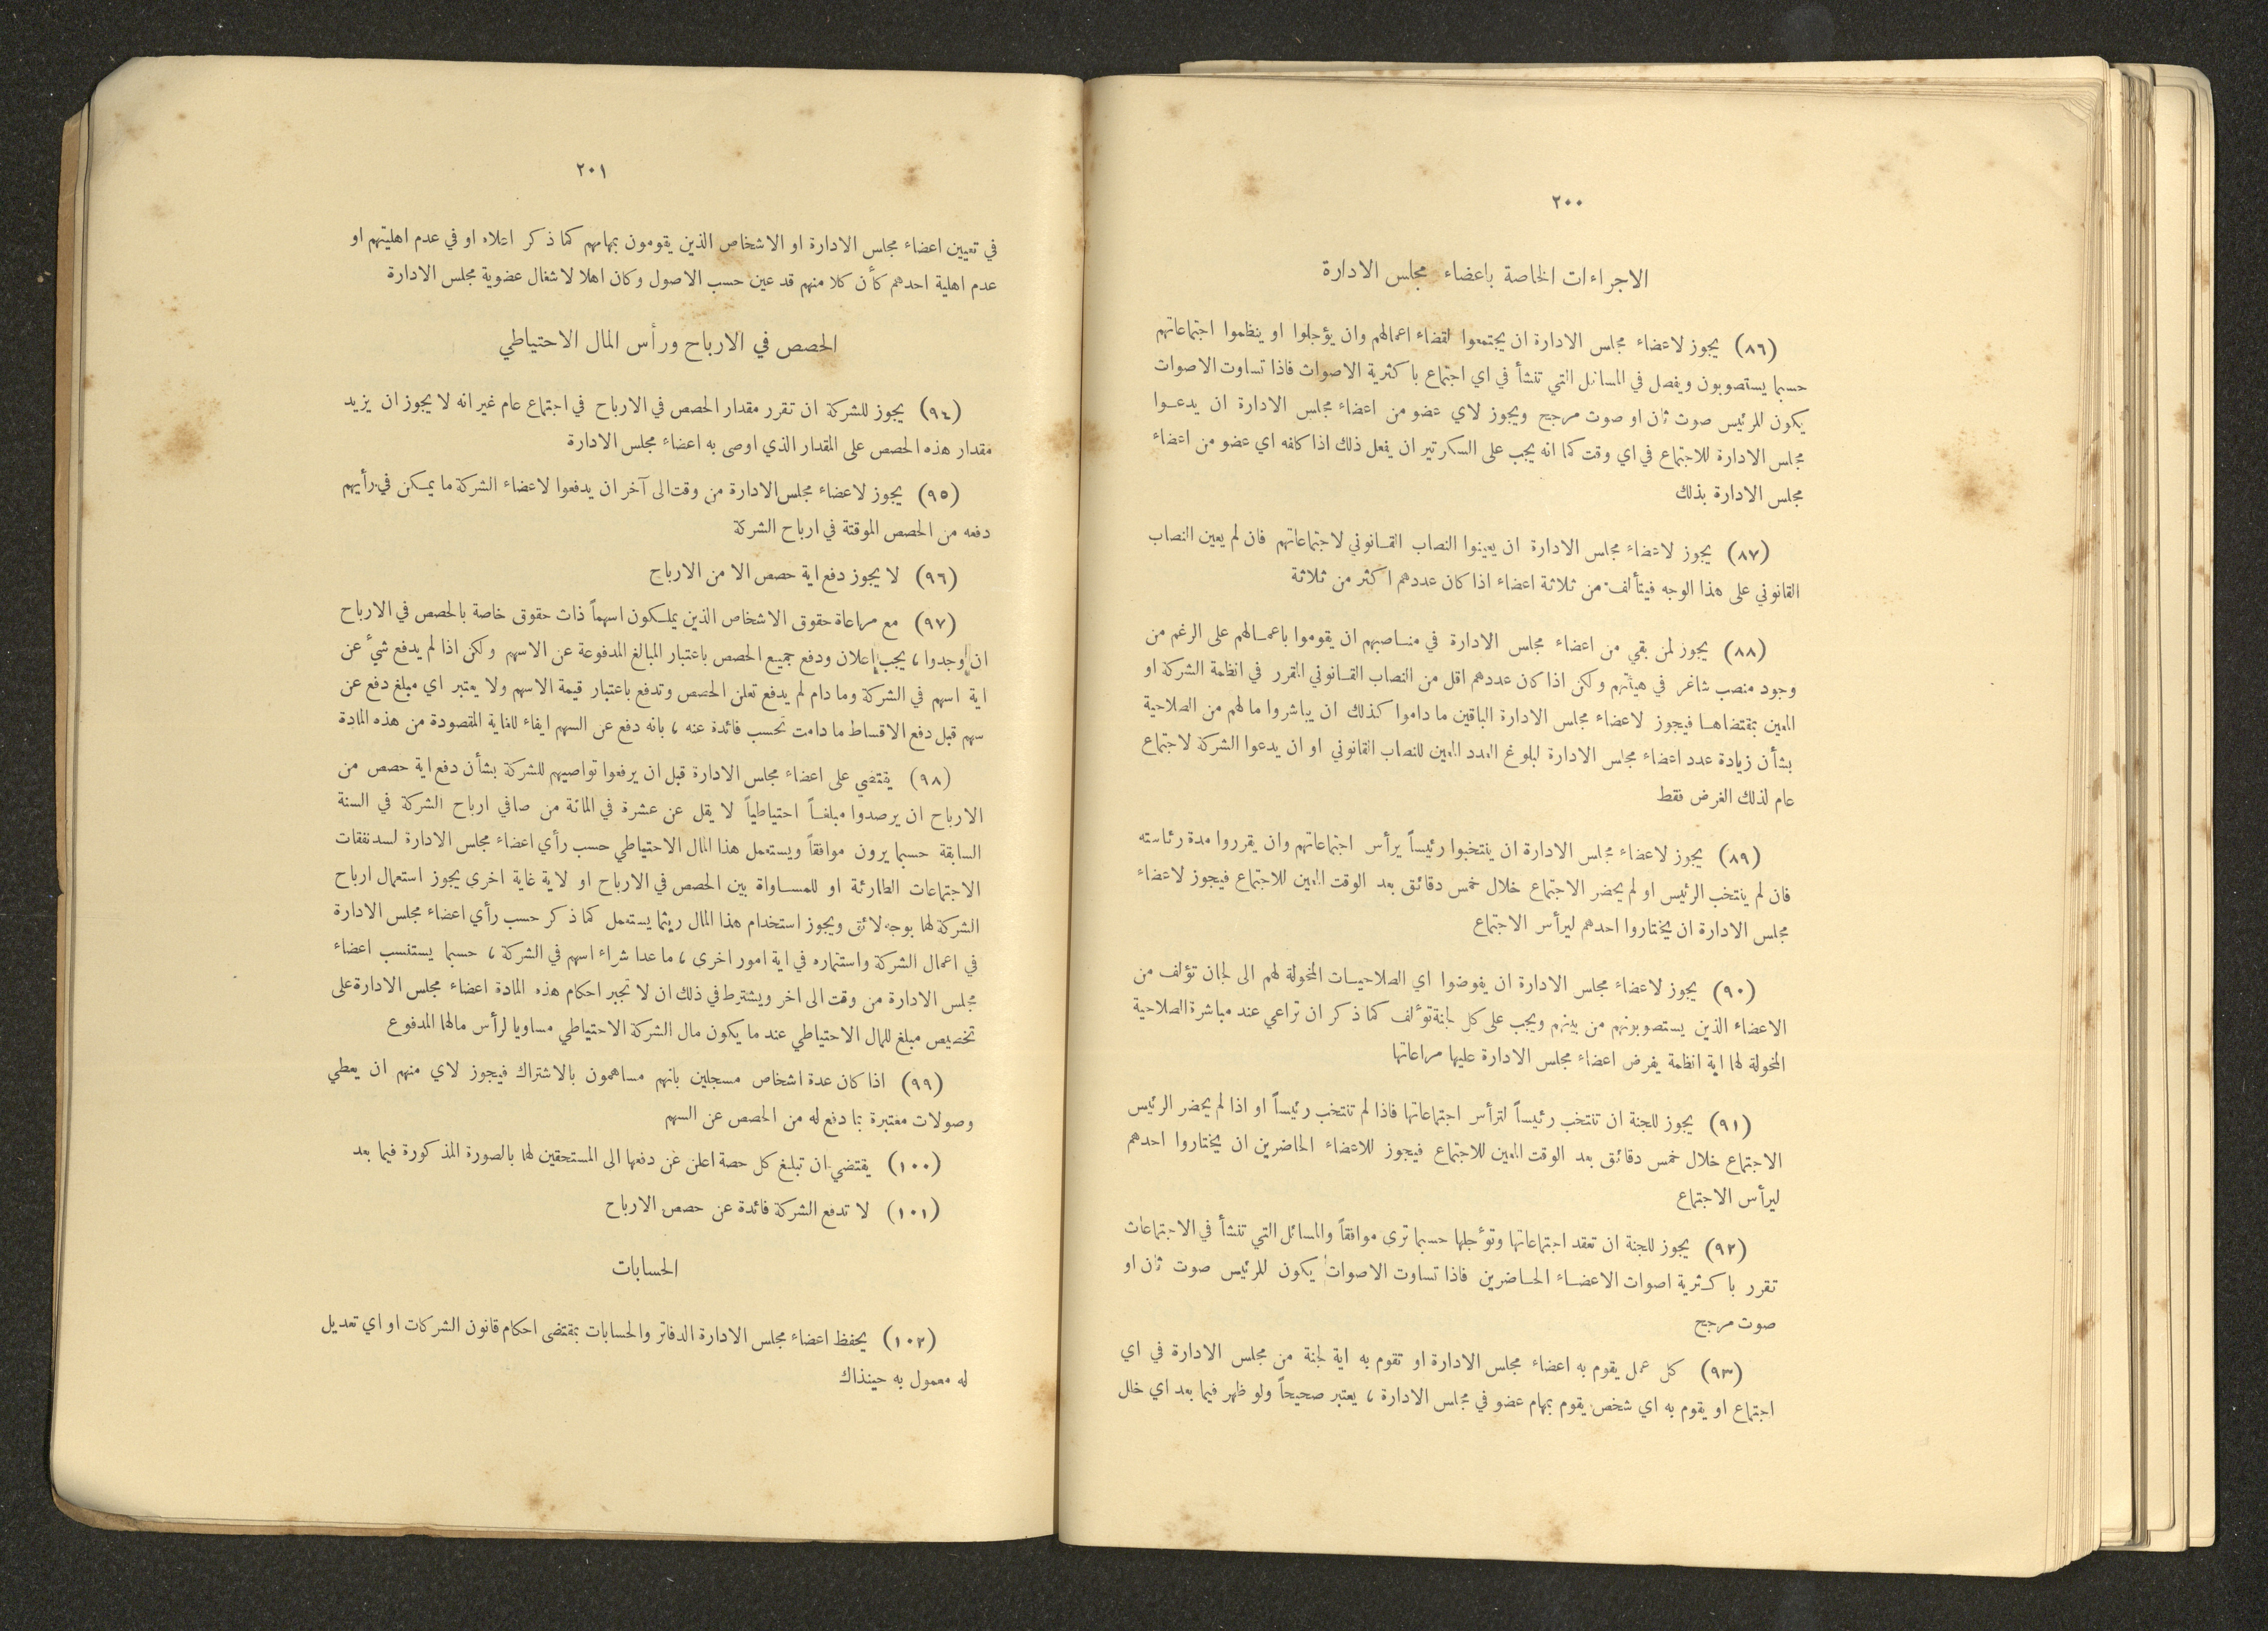 ٢٠٠
الاجراءات الخاصة باعضاء مجلس الادارة
(٨٦) يجوز لاعضاء مجلس الادارة ان يجتمعوا لقضاء اعمالهم وان يؤجلوا او ينظموا اجتماعاتهم
حسبما يستصوبون ويفصل في المسائل التي تنشأ في اي اجتماع باكثرية الاصوات فاذا تساوت الاصوات
يكون للرئيس صوت ثان او صوت مرجح ويجوز لاي عضو من اعضاء مجلس الادارة ان يدعوا
مجلس الادارة للاجتماع في اي وقت كما انه يجب على السكرتير ان يفعل ذلك اذا كلفه اي عضو من اعضاء
مجلس الادارة بذلك
(٨٧) يجوز لاعضاء مجلس الادارة ان يعينوا النصاب القانوني لاجتماعاتهم فان لم يعين النصاب
القانوني على هذا الوجه فيتألف من ثلاثة اعضاء اذا كان عددهم اكثر من ثلاثة
(٨٨) يجوز لمن بقي من اعضاء مجلس الادارة في مناصبهم ان يقوموا باعمالهم على الرغم من
وجود منصب شاغر في هيئتهم ولكن اذا كان عددهم اقل من النصاب القانوني المقرر في انظمة الشركة او
المعين بمقتضاها فيجوز لاعضاء مجلس الادارة الباقين ما داموا كذلك ان يباشروا ما لهم من الصلاحية
بشأن زيادة عدد اعضاء مجلس الادارة لبلوغ العدد المعين للنصاب القانوني او ان يدعوا الشركة لاجتماع
عام لذلك الغرض فقط
(٨٩) يجوز لاعضاء مجلس الادارة ان ينتخبوا رئيساً يرأس اجتماعاتهم وان يقرروا مدة رئاسته
فان لم ينتخب الرئيس او لم يحضر الاجتماع خلال خمس دقائق بعد الوقت المعين للاجتماع فيجوز لاعضاء
مجلس الادارة ان يختاروا احدهم ليرأس الاجتماع
(٩٠) يجوز لاعضاء مجلس الادارة ان يفوضوا اي الصلاحيات المخولة لهم الى لجان تؤلف من
الاعضاء الذين يستصوبونهم من بينهم ويجب على كل لجنة تؤلف كما ذكر ان تراعي عند مباشرة الصلاحية
المخولة لها اية انظمة يفرض اعضاء مجلس الادارة عليها مراعاتها
(٩١) يجوز للجنة ان تنتخب رئيساً لترأس اجتماعاتها فاذا لم تنتخب رئيساً او اذا لم يحضر الرئيس
الاجتماع خلال خمس دقائق بعد الوقت المعين للاجتماع فيجوز للاعضاء الحاضرين ان يختاروا احدهم
ليرأس الاجتماع
(٩٢) يجوز للجنة ان تعقد اجتماعاتها وتؤجلها حسبما ترى موافقاً والمسائل التي تنشأ في الاجتماعات
تقرر باكثرية اصوات الاعضاء الحاضرين فاذا تساوت الاصوات يكون للرئيس صوت ثان او
صوت مرجح
(٩٣) كل عمل يقوم به اعضاء مجلس الادارة او تقوم به اية لجنة من مجلس الادارة في اي
اجتماع او يقوم به اي شخص يقوم بمهام عضو في مجلس الادارة ، يعتبر صحيحاً ولو ظهر فيما بعد اي خلل
٢٠١
في تعيين اعضاء مجلس الادارة او الاشخاص الذين يقومون بمهامهم كما ذكر اعلاه او في عدم اهليتهم او
عدم اهلية احدهم كأن كلا منهم قد عين حسب الاصول وكان اهلا لاشغال عضوية مجلس الادارة
الحصص في الارباح ورأس المال الاحتياطي
(٩٤) يجوز للشركة ان تقرر مقدار الحصص في الارباح في اجتماع عام غير انه لا يجوز ان يزيد
مقدار هذه الحصص على المقدار الذي اوصى به اعضاء مجلس الادارة
(٩٥) يجوز لاعضاء مجلس الادارة من وقت الى آخر ان يدفعوا لاعضاء الشركة ما يمكن في رأيهم
دفعه من الحصص الموقتة في ارباح الشركة
(٩٦) لا يجوز دفع اية حصص الا من الارباح
(٩٧) مع مراعاة حقوق الاشخاص الذين يملكون اسهماً ذات حقوق خاصة بالحصص في الارباح
ان وجدوا ، يجب إعلان ودفع جميع الحصص باعتبار المبالغ المدفوعة عن الاسهم ولكن اذا لم يدفع شيء عن
اية اسهم في الشركة وما دام لم يدفع تعلن الحصص وتدفع باعتبار قيمة الاسهم ولا يعتبر اي مبلغ دفع عن
سهم قبل دفع الاقساط ما دامت تحسب فائدة عنه ، بانه دفع عن السهم ايفاء للغاية المقصودة من هذه المادة
(٩٨) يقتضي على اعضاء مجلس الادارة قبل ان يرفعوا تواصيهم للشركة بشأن دفع اية حصص من
الارباح ان يرصدوا مبلغاً احتياطياً لا يقل عن عشرة في المائة من صافي ارباح الشركة في السنة
السابقة حسبما يرون موافقاً ويستعمل هذا المال الاحتياطي حسب رأي اعضاء مجلس الادارة لسد نفقات
الاجتماعات الطارئة او للمساواة بين الحصص في الارباح او لاية غاية اخرى يجوز استعمال ارباح
الشركة لها بوجه لائق ويجوز استخدام هذا المال ريثما يستعمل كما ذكر حسب رأي اعضاء مجلس الادارة
في اعمال الشركة واستثماره في اية امور اخرى ، ما عدا شراء اسهم في الشركة ، حسبما يستنسب اعضاء
مجلس الادارة من وقت الى اخر ويشترط في ذلك ان لا تجبر احكام هذه المادة اعضاء مجلس الادارة على
تخصيص مبلغ للمال الاحتياطي عند ما يكون مال الشركة الاحتياطي مساويا لرأس مالها المدفوع
(٩٩) اذا كان عدة اشخاص مسجلين بانهم مساهمون بالاشتراك فيجوز لاي منهم ان يعطي
وصولات معتبرة بما دفع له من الحصص عن السهم
(١٠٠) يقتضي ان تبلغ كل حصة اعلن عن دفعها الى المستحقين لها بالصورة المذكورة فيما بعد
(١٠١) لا تدفع الشركة فائدة عن حصص الارباح
الحسابات
(١٠٢) يحفظ اعضاء مجلس الادارة الدفاتر والحسابات بمقتضى احكام قانون الشركات او اي تعديل
له معمول به حينذاك